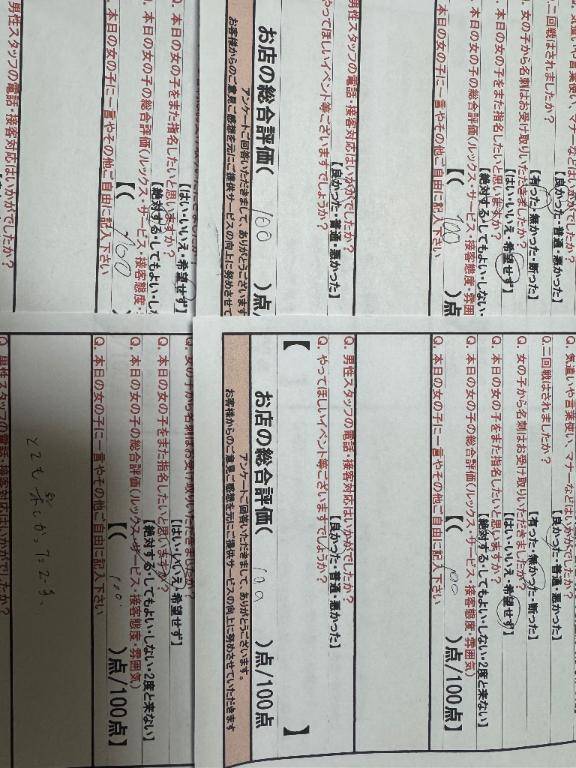 Q. 気遣いや言葉使い、マナーなど
【良かった・普通・悪かった】
Q. 二回戦はされましたか？
【有った・無かった・断った】
Q. 女の子から名刺はお受け取りいただきましたか？
【はい・いいえ・希望せず】
Q. 本日の女の子をまた指名したいと思いますか？
【絶対する・してもよい・しない
Q. 本日の女の子の総合評価(ルックス・サービス・接客態度・雰囲
【( 100 )点
Q. 本日の女の子に一言やその他ご自由に記入下さい
男性スタッフの電話・接客対応はいかがでしたか？
【良かった・普通・悪かった】
やってほしいイベント等ございますでしょうか？
お店の総合評価( 100 )点
アンケートご回答いただきまして、ありがとうございます
お客様からのご意見ご感想を元にご提供サービスの向上に努めさせて
【はい・いいえ・希望せず】
Q. 本日の女の子をまた指名したいと思いますか？
【絶対する・してもよい・し
Q. 本日の女の子の総合評価(ルックス・サービス・接客態度・
【( 100 )点
本日の女の子に一言やその他ご自由に記入下さい
男性スタッフの電話・接客対応はいかがでしたか？
Q. 気遣いや言葉使い、マナーなど
【良かった・普通・悪かった】
Q. 二回戦はされましたか？
【有った・無かった・断った】
Q. 女の子から名刺はお受け取りいただきましたか？
【はい・いいえ・希望せず】
Q. 本日の女の子をまた指名したいと思いますか？
【絶対する・してもよい・しない・2度と来ない】
Q. 本日の女の子の総合評価(ルックス・サービス・接客態度・雰囲気)
【( 100 )点/100点】
Q. 本日の女の子に一言やその他ご自由に記入下さい
Q. 男性スタッフの電話・接客対応はいかがでしたか？
【良かった・普通・悪かった】
Q. やってほしいイベント等ございますでしょうか？
【 】
お店の総合評価( 100 )点/100点
アンケートご回答いただきまして、ありがとうございます。
お客様からのご意見ご感想を元にご提供サービスの向上に努めさせていただきます
Q. 女の子から名刺はお受け取りいただきましたか？
【はい・いいえ・希望せず】
Q. 本日の女の子をまた指名したいと思いますか？
【絶対する・してもよい・しない・2度と来ない】
Q. 本日の女の子の総合評価(ルックス・サービス・接客態度・雰囲気)
【( 100 )点/100点】
Q. 本日の女の子に一言やその他ご自由に記入下さい
とても楽しかったです。
Q. 男性スタッフの電話・接客対応はいかがでしたか？